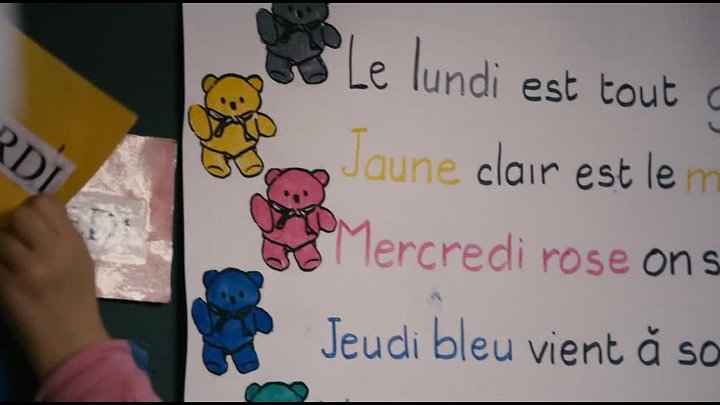 Le lundi est tout
Jaune clair est le
Mercredi rose on s
Jeudi bleu vient à so
RDI